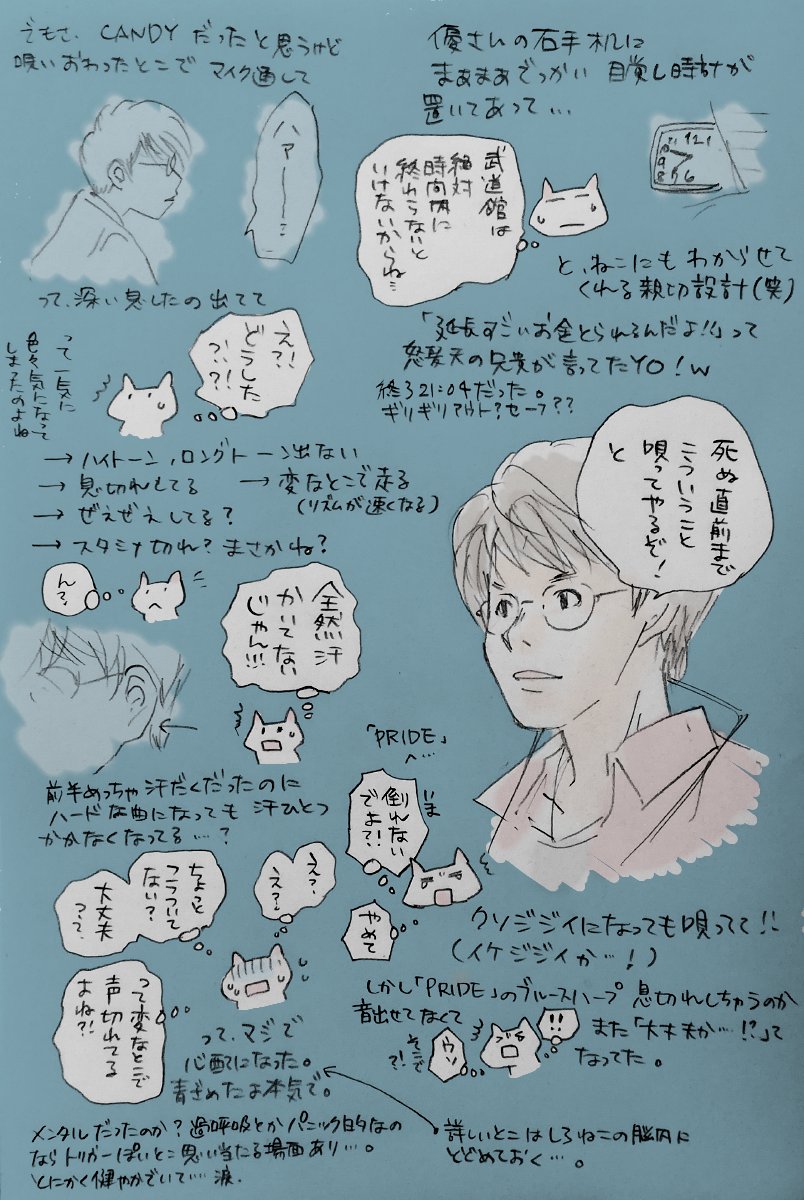 でもさ、CANDYだったと思うけど
唄いおわったとこで マイク通して
ハァーー…
って、深い息したの出てて
え?!
どうした
?!?!
って一気に
色々気になって
しまったのよね
→ ハイトーン,ロングトーン出ない
→ 息切れしてる → 変なとこで走る
(リズムが速くなる)
→ ぜえぜえしてる?
→ スタミナ切れ? まさかね?
ん?
全然汗
かいてない
じゃん!!!
前半めっちゃ汗だくだったのに
ハードな曲になっても 汗ひとつ
かかなくなってる…?
優さんの右手机に
まぁまぁでっかい 目覚し時計が
置いてあって…
武道館は
絶対
時間内に
終わらないと
いけないからね…
12 1
と、ねこにも わからせて
くれる 親切設計(笑)
「延長すごいお金とられるんだよ!!」って
怒髪天の兄貴が言ってたYO!w
終了21:04だった。
ギリギリアウト?セーフ??
死ぬ直前まで
こういうこと
唄ってやるぞ!
と
「PRIDE」
へ…
いま
倒れない
でよ?!
やめて
クソジジイになっても唄ってて!!
(イケジジイか…!)
え?
え?
ちょっと
フラついて
ない?
大丈夫
って、
って変なとこで
声切れてる
よね?!
って、マジで
心配になった。
青ざめたよ本気で。
しかし「PRIDE」のブルースハープ 息切れしちゃうのか
音出せてなくて
そこで
?!
ウソ
!!
また「大丈夫か…!?」って
なってた。
メンタルだったのか?過呼吸とかパニック的なの
ならトリガーぽいとこ思い当たる場面あり…。
とにかく健やかでいて…涙
詳しいとこはしろねこの脳内に
とどめておく…。